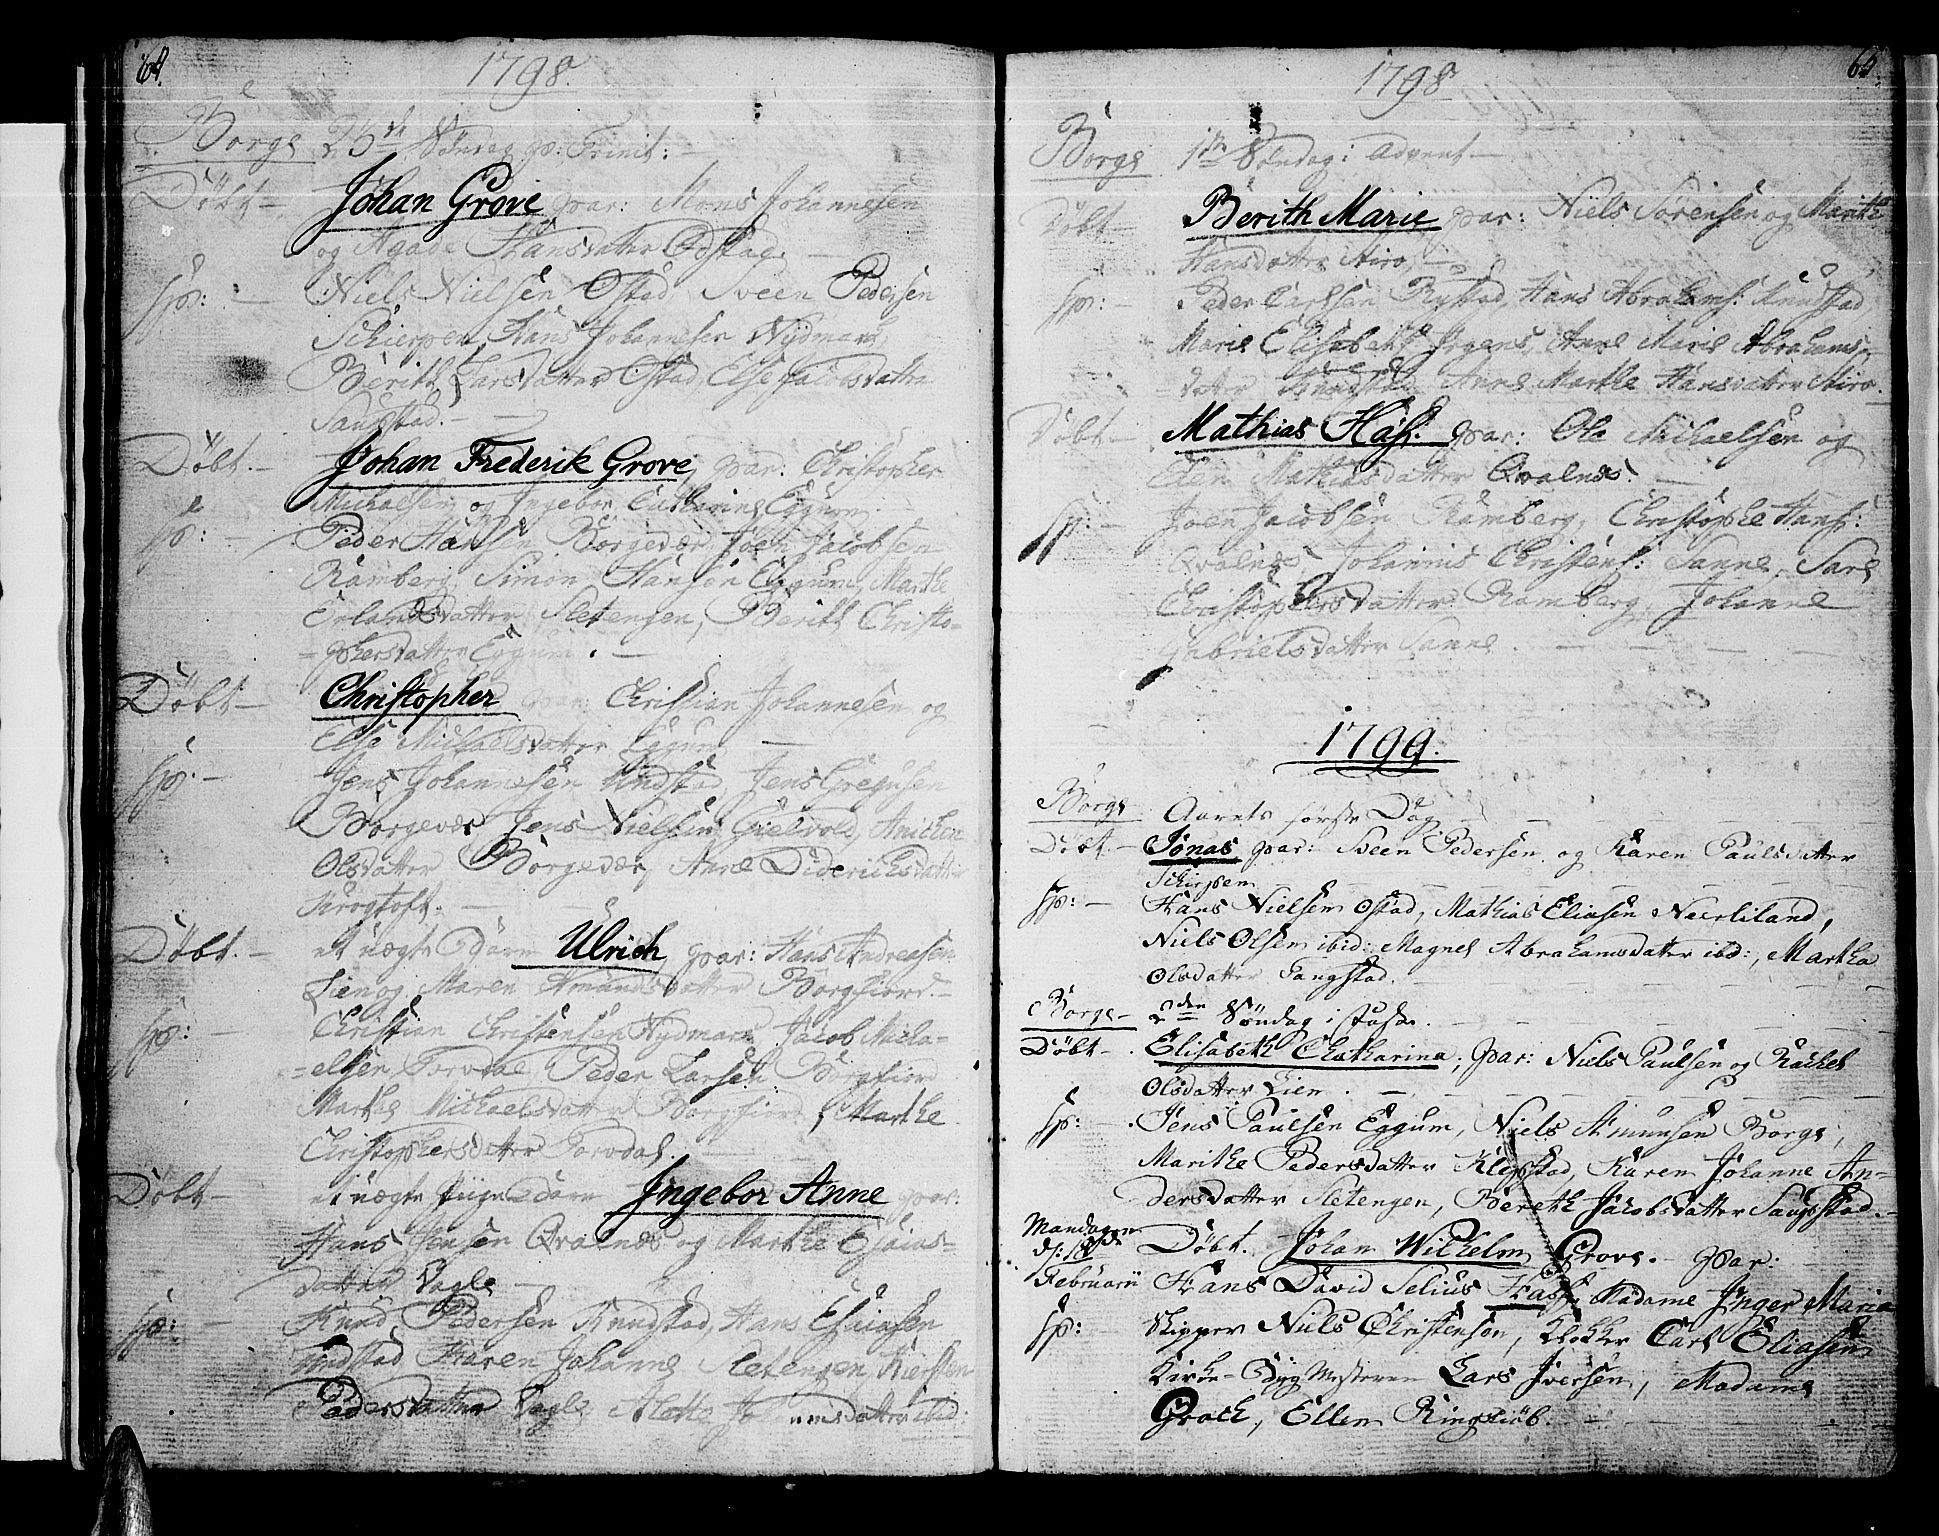 64.
1798.
Borge 25de Søndag p: Trinit:
Døbt Johan Grove par: Mons Johannesen
og Agade Hansdatter Opstad.
sp: Niels Nielsen Ostad, Sveen Pedersen
Schierpen, Hans Johannesen Nydmark,
Berith Larsdatter Ostad, Else Jacobsdatter
Saugstad.
Døbt. Johan Frederik Grove, par: Christopher
Michaelsen og Ingebor Catharina Eggum.
sp: Peder Hansen Borgevær, Joen Jacobsen
Ramberg, Simon Hanson Eggum, Marthe
Erlandsdatter Sletengen, Berith Christo-
-phersdatter Eggum.
Døbt Christopher par: Christian Johannesen og
Else Michaelsdatter Eggum
sp. Jens Johannesen Undstad, Jens Gregusen
Borgevær, Jens Nielsen Gielvold, Anichen
Olsdatter Borgevær, Anne Dideriksdatter
Krogtoft.
Døbt. et uægte Barn Ulrich par: Hans Andreasen
Lien og Maren Amundsdatter Borgfiord.
sp: Christian Christensen Nydmark, Jacob Micha-
-elsen Torvdal, Peder Larsen Borgfiord
Marthe Michaelsdatter Borgfiord, Marthe
Christophersdatter Torvdal.
Døbt et uægte Pige Barn Ingebor Anne par:
Hans Jensen Qvalnes og Marthe Esaias-
datter Vagle
sp: Knud Pedersen Knudstad, Hans Esaiasen
Undstad, Karen Johanne Sletengen, Kiersten
Pedersdatter Vagle, Alette Johannesdatter ibid:
64.
1798
Borge 1ste Søndag i Advent
Døbt Berith Marie par: Niels Sørensen og Marithe
Hansdatter Stiro,
sp: Peder Carlsen Rystad, Hans Abrahams: Knudstad,
Marie Elisabeth Irgens, Anne Marie Abrahams-
datter Knudstad, Anne Marthe Hansdatter Stiro.
Døbt Mathias Hass: par: Ole Michaelsen og
Elen Mathiasdatter Qvalnes.
sp: Joen Jacobsen Ramberg, Christophe Hans:
Qvalnes, Johannis Christens: Sanne, Sare
Christophersdatter Ramberg, Johanne
Gabrielsdatter Sanne.
1799.
Borge Aarets første Dag
Døbt. Jonas, par: Sveen Pedersen og Karen Paulsdatter
Schirpen
sp: Hans Nielsen Ostad, Mathias Eliasen Neerliland,
Niels Olsen ibid: Magnel Abrahamsdatter ibd:, Martha
Olsdatter Sangstad.
Borge 2den Søndag i Faste.
Døbt Elisabeth Chatharina, par: Niels Paulsen og Rachel
Olsdatter Lien.
sp: Jens Paulsen Eggum, Niels Amunsen Borge,
Marithe Pedersdatter Klepstad, Karen Johanne An-
dersdatter Sletengen, Bereth Jacobsdatter Saugstad.
Mandagen
d: 18de Døbt. Johan Wilhelm Grove. par:
Februarii Hans David Selius Hass, Madame Inger Maria
sp: Skipper Niels Christenson, Klokker Carl Eliasen
Kirke-Byg Mesteren Lars Iversen, Madame
Groch, Ellen Ringsiøb.